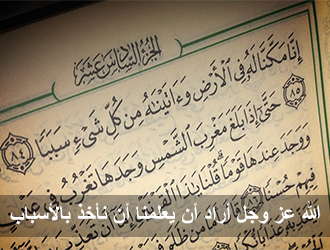 الجزء السادس عشر
إِنَّا مَكَّنَّا لَهُ فِي ٱلْأَرْضِ وَءَاتَيْنَٰهُ مِن كُلِّ شَيْءٍ سَبَبًا
٨٤
٨٥
حَتَّىٰٓ إِذَا بَلَغَ مَغْرِبَ ٱلشَّمْسِ وَجَدَهَا تَغْرُبُ فِي
وَوَجَدَ عِندَهَا قَوْمًا قُلْنَا يَٰذَا
فِيهِمْ حُسْنًا ٨٦
الله عز وجل أراد أن يعلمنا أن نأخذ بالأسباب